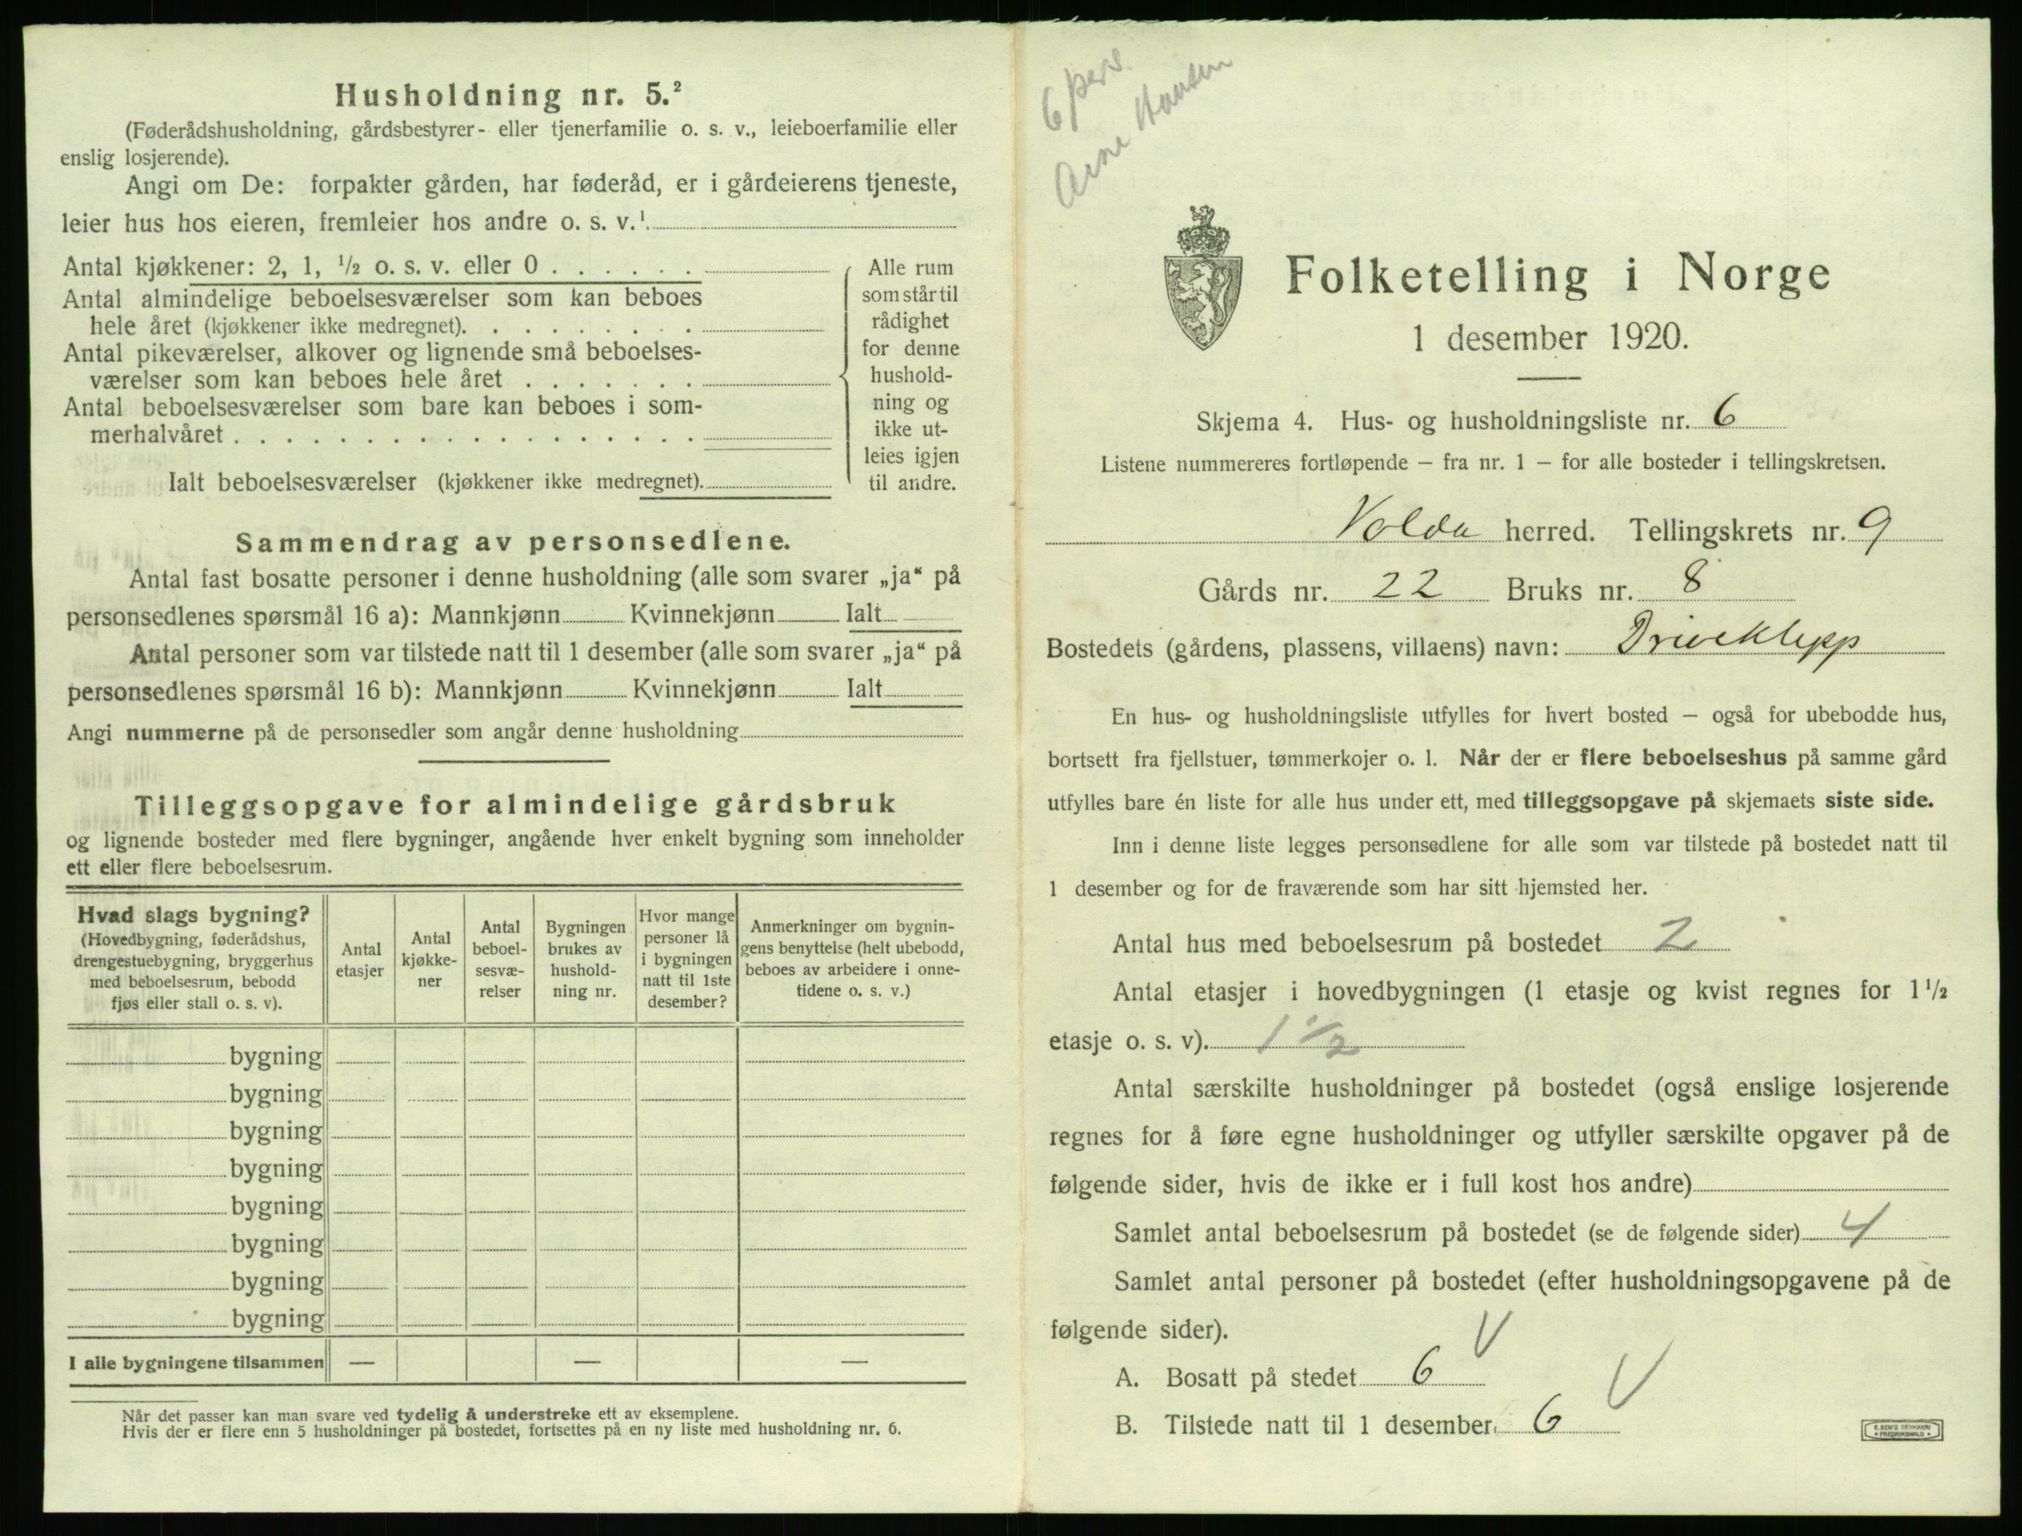 Husholdning nr. 5.²
(Føderådshusholdning, gårdsbestyrer- eller tjenerfamilie o. s. v., leieboerfamilie eller
enslig losjerende).
Angi om De: forpakter gården, har føderåd, er i gårdeierens tjeneste,
leier hus hos eieren, fremleier hos andre o. s. v.¹
Antal kjøkkener: 2, 1, ½ o. s. v. eller 0 . . . . . .
Antal almindelige beboelsesværelser som kan beboes
hele året (kjøkkener ikke medregnet). . . . . . . . .
Antal pikeværelser, alkover og lignende små beboelses-
værelser som kan beboes hele året . . . . . . .
Antal beboelsesværelser som bare kan beboes i som-
merhalvåret . . . . . . . . . . . . . . . . . .
Ialt beboelsesværelser (kjøkkener ikke medregnet).
Alle rum
som står til
rådighet
for denne
hushold-
ning og
ikke ut-
leies igjen
til andre.
Sammendrag av personsedlene.
Antal fast bosatte personer i denne husholdning (alle som svarer „ja“ på
personsedlenes spørsmål 16 a): Mannkjønn Kvinnekjønn Ialt
Antal personer som var tilstede natt til 1 desember (alle som svarer „ja“ på
personsedlenes spørsmål 16 b): Mannkjønn Kvinnekjønn Ialt
Angi nummerne på de personsedler som angår denne husholdning
Tilleggsopgave for almindelige gårdsbruk
og lignende bosteder med flere bygninger, angående hver enkelt bygning som inneholder
ett eller flere beboelsesrum.
Hvad slags bygning?
(Hovedbygning, føderådshus,
drengestuebygning, bryggerhus
med beboelsesrum, bebodd
fjøs eller stall o. s. v).
Antal
etasjer
Antal
kjøkke-
ner
Antal
beboel-
sesvæ-
relser
Bygningen
brukes av
hushold-
ning nr.
Hvor mange
personer lå
i bygningen
natt til 1ste
desember?
Anmerkninger om bygnin-
gens benyttelse (helt ubebodd,
beboes av arbeidere i onne-
tidene o. s. v.)
bygning
bygning
bygning
bygning
bygning
bygning
bygning
bygning
I alle bygningene tilsammen — — —
Når det passer kan man svare ved tydelig å understreke ett av eksemplene.
Hvis der er flere enn 5 husholdninger på bostedet, fortsettes på en ny liste med husholdning nr. 6.
6 pers.
Arne Hansen
Folketelling i Norge
1 desember 1920.
Skjema 4. Hus- og husholdningsliste nr. 6
Listene nummereres fortløpende – fra nr. 1 – for alle bosteder i tellingskretsen.
Volda herred. Tellingskrets nr. 9
Gårds nr. 22 Bruks nr. 8
Bostedets (gårdens, plassens, villaens) navn: Driveklepp
En hus- og husholdningsliste utfylles for hvert bosted – også for ubebodde hus,
bortsett fra fjellstuer, tømmerkojer o. l. Når der er flere beboelseshus på samme gård
utfylles bare én liste for alle hus under ett, med tilleggsopgave på skjemaets siste side.
Inn i denne liste legges personsedlene for alle som var tilstede på bostedet natt til
1 desember og for de fraværende som har sitt hjemsted her.
Antal hus med beboelsesrum på bostedet 2
Antal etasjer i hovedbygningen (1 etasje og kvist regnes for 1½
etasje o. s. v). 1½
Antal særskilte husholdninger på bostedet (også enslige losjerende
regnes for å føre egne husholdninger og utfyller særskilte opgaver på de
følgende sider, hvis de ikke er i full kost hos andre)
Samlet antal beboelsesrum på bostedet (se de følgende sider) 4
Samlet antal personer på bostedet (efter husholdningsopgavene på de
følgende sider).
A. Bosatt på stedet 6
B. Tilstede natt til 1 desember 6